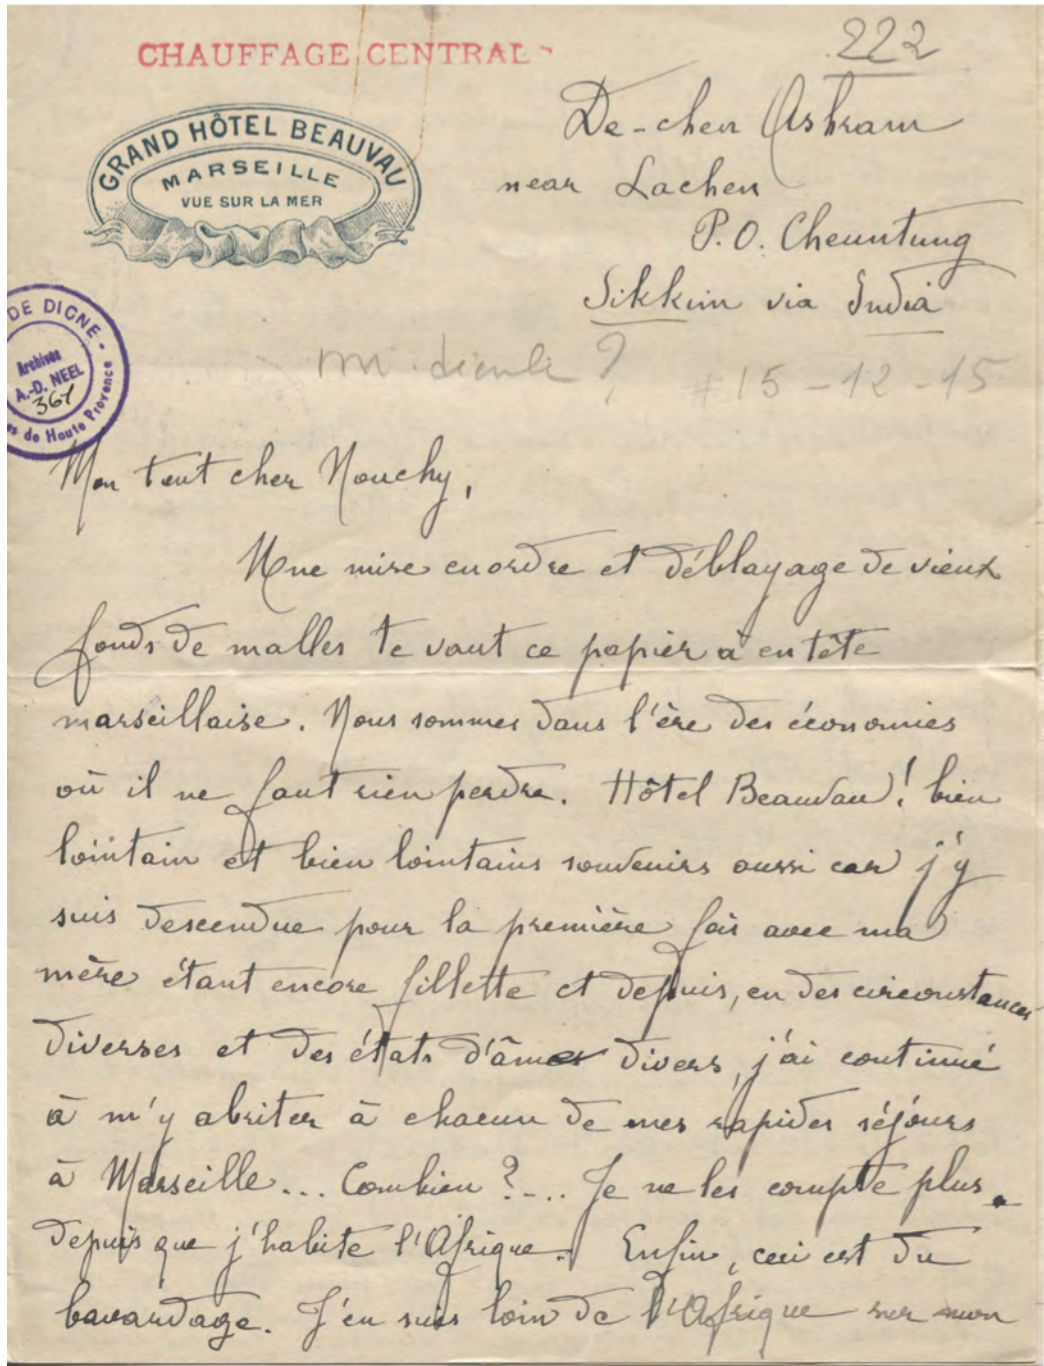 222
CHAUFFAGE CENTRAL
GRAND HÔTEL BEAUVAU
MARSEILLE
VUE SUR LA MER
De-chen Ashram
near Lachen
P.O. Cheuntung
Sikkim via India
DE DIGNE
Archives
A.-D. NEEL
367
de Haute Provence
?
15-12-15
Mon tout cher Mouchy,
Une mise en ordre et déblayage de vieux
fonds de malles te vaut ce papier à en tête
marseillaise. Nous sommes dans l'ère des économies
où il ne faut rien perdre. Hôtel Beauvau! bien
lointain et bien lointains souvenirs aussi car j'y
suis descendue pour la première fois avec ma
mère étant encore fillette et depuis, en des circonstances
diverses et des états d'âmes divers, j'ai continué
à m'y abriter à chacun de mes rapides séjours
à Marseille... Combien ?... Je ne les compte plus
depuis que j'habite l'Afrique. Enfin, ceci est du
bavardage. J'en suis loin de l'Afrique sur mon